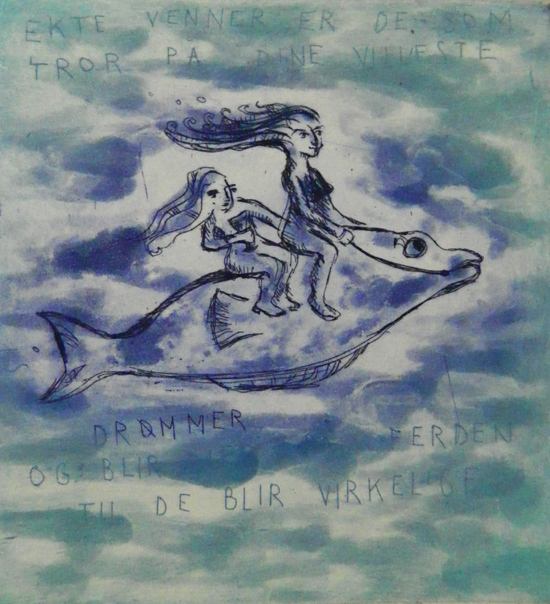 EKTE VENNER ER DE SOM
TROR PÅ DINE VILLESTE
DRØMMER FERDEN
OG BLIR
TIL DE BLIR VIRKELIGE